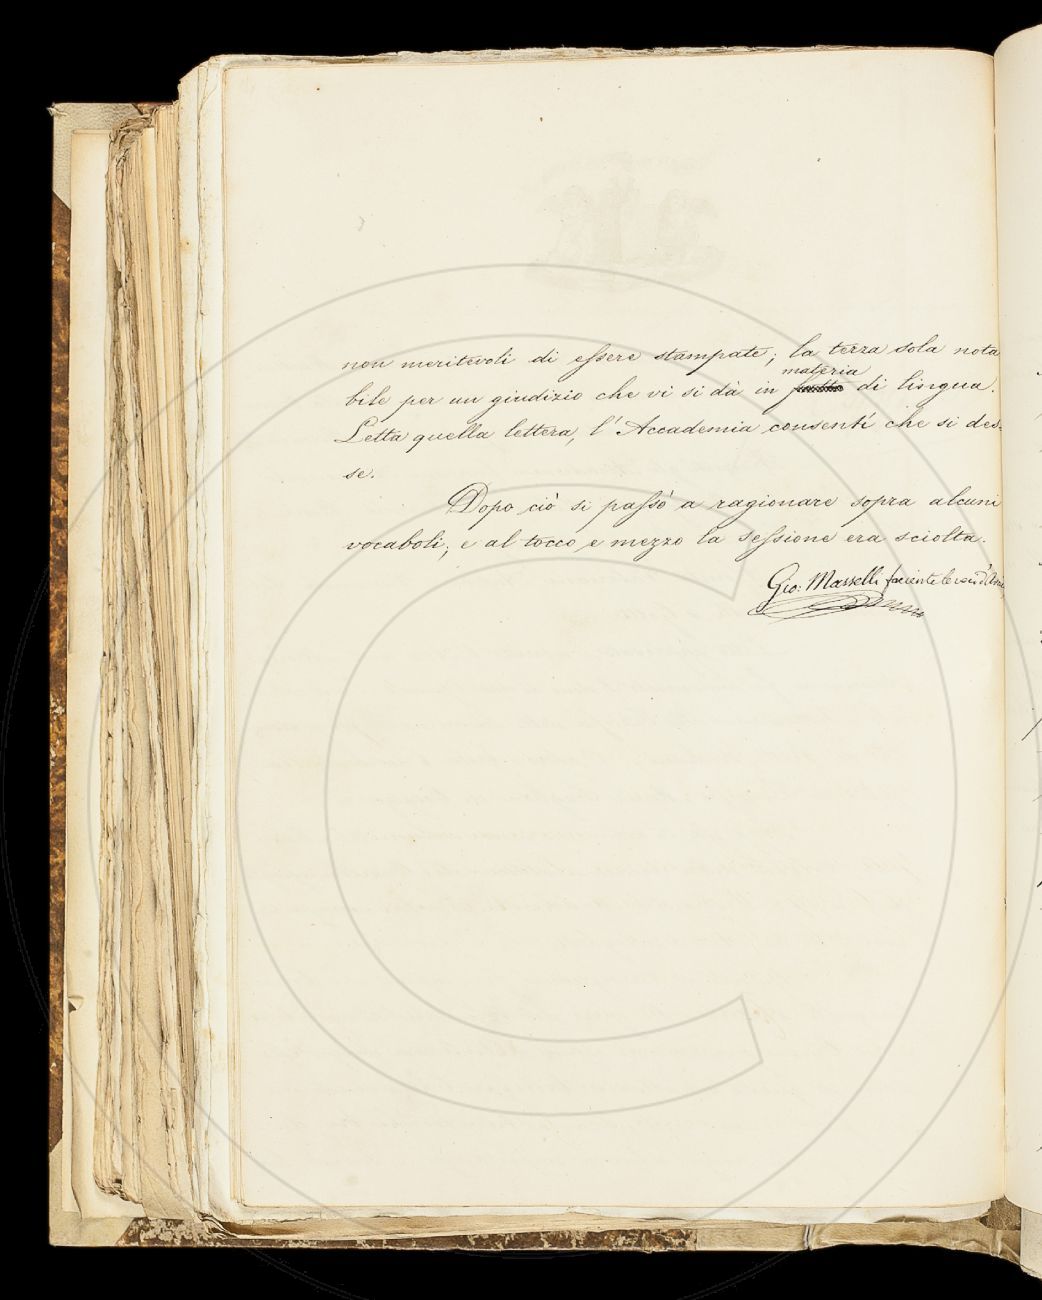 non meritevoli di essere stampate; la terza sola nota
materia
bile per un giudizio che vi si dà in di lingua.
Letta quella lettera, l'Accademia consentì che si des=
se.
Dopo ciò si passò a ragionare sopra alcuni
vocaboli; e al tocco e mezzo la sessione era sciolta.
Gio: Masselli facente le veci